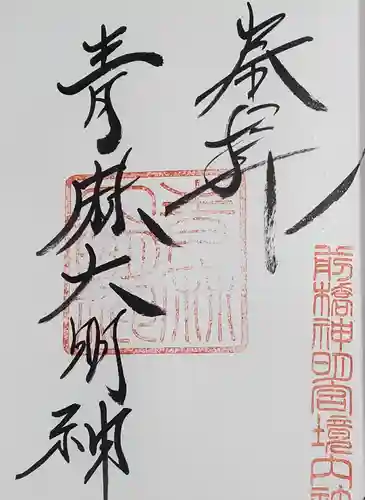 奉拝
青麻大明神
前橋神明宮境内社